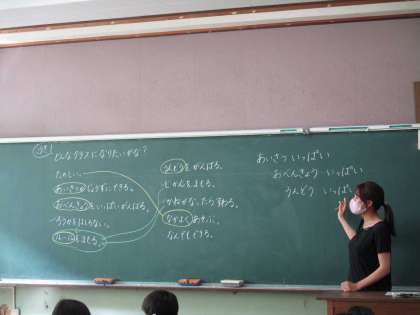 どんなクラスになりたいかな?
たのしい。
あいさつがじょうずにできる。
おべんきょうをいっぱいがんばる。
ろうかをはしらない。
ルールをまもる。
をがんばる。
じかんをまもる。
かねがなったら
なかよくあそぶ。
なんでもできる。
あいさつ いっぱい
おべんきょう いっぱい
うんどう いっぱい